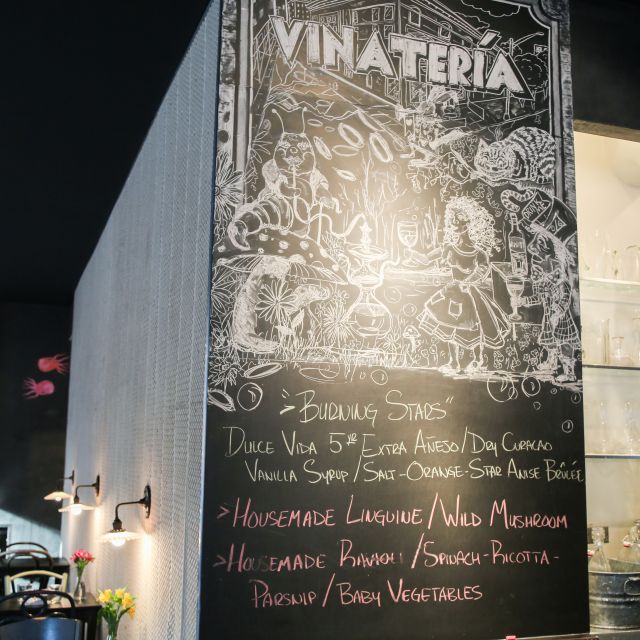 VINATERÍA
>"BURNING STARS"
DULCE VIDA 5YR EXTRA AÑEJO/DRY CURACAO
VANILLA SYRUP/SALT-ORANGE-STAR ANISE BRÛLÉE
>HOUSEMADE LINGUINE/WILD MUSHROOM
>HOUSEMADE RAVIOLI/SPINACH-RICOTTA-
PARSNIP/BABY VEGETABLES